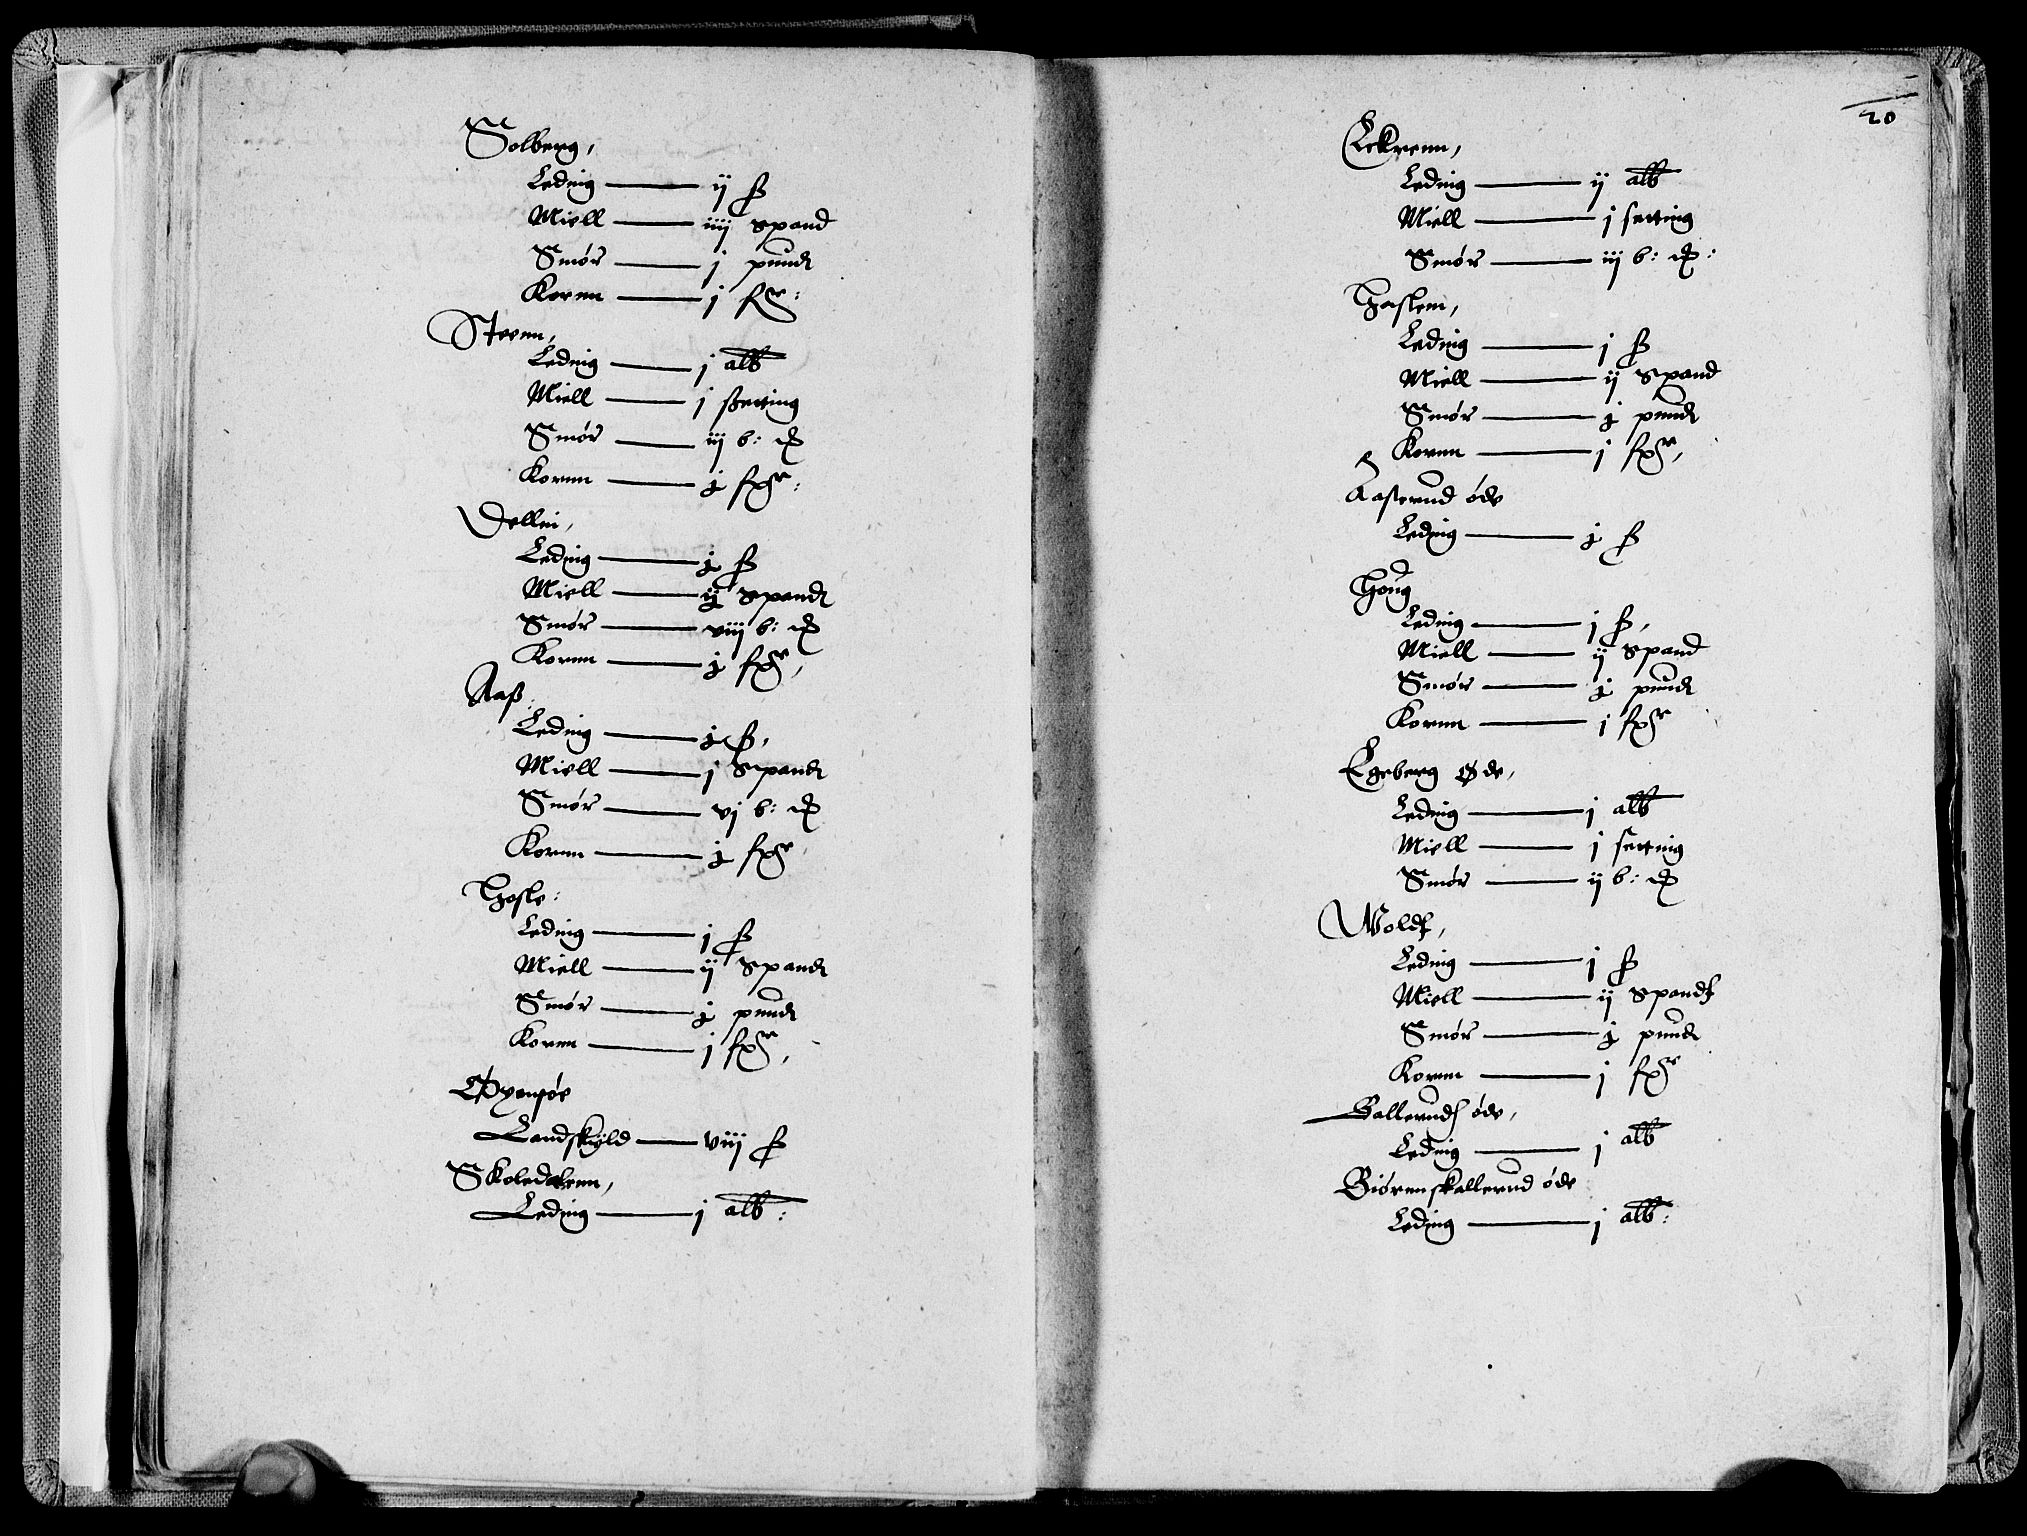 Solberg,
Leding — ij ß
Miell — iiij Spand
Smør — j pundt
Kornn — j
Steenn,
Leding — j alb
Miell — j setting
Smør — iij b:
Kornn — j
Dellin,
Leding — j ß
Miell — ij Spandt
Smør — viij b:
Kornn — j
Aaß:
Leding — j ß,
Miell — j Spandt
Smør — vj b:
Kornn — j
Hasle:
Leding — j ß
Miell — ij Spandt
Smør — j pundt
Kornn — j
Øyensøe
Landskyld — viij ß
Skoledalenn,
Leding — j alb:
20
Eckrenn,
Leding — ij alb
Miell — j setting
Smør — iij b:
Haslem,
Leding — j ß
Miell — ij Spand
Smør — j pundt
Kornn — j
Aasterud øde
Leding — j ß
Houg
Leding — j ß,
Miell — ij Spand
Smør — j pundt
Kornn — j
Egeberg Øde,
Leding — j alb
Miell — j setting
Smør — ij b:
Woldt,
Leding — j ß
Miell — ij Spandt
Smør — j pundt
Kornn — j
Ballerudt øde,
Leding — j alb
Biørenskallerud øde
Leding — j alb: